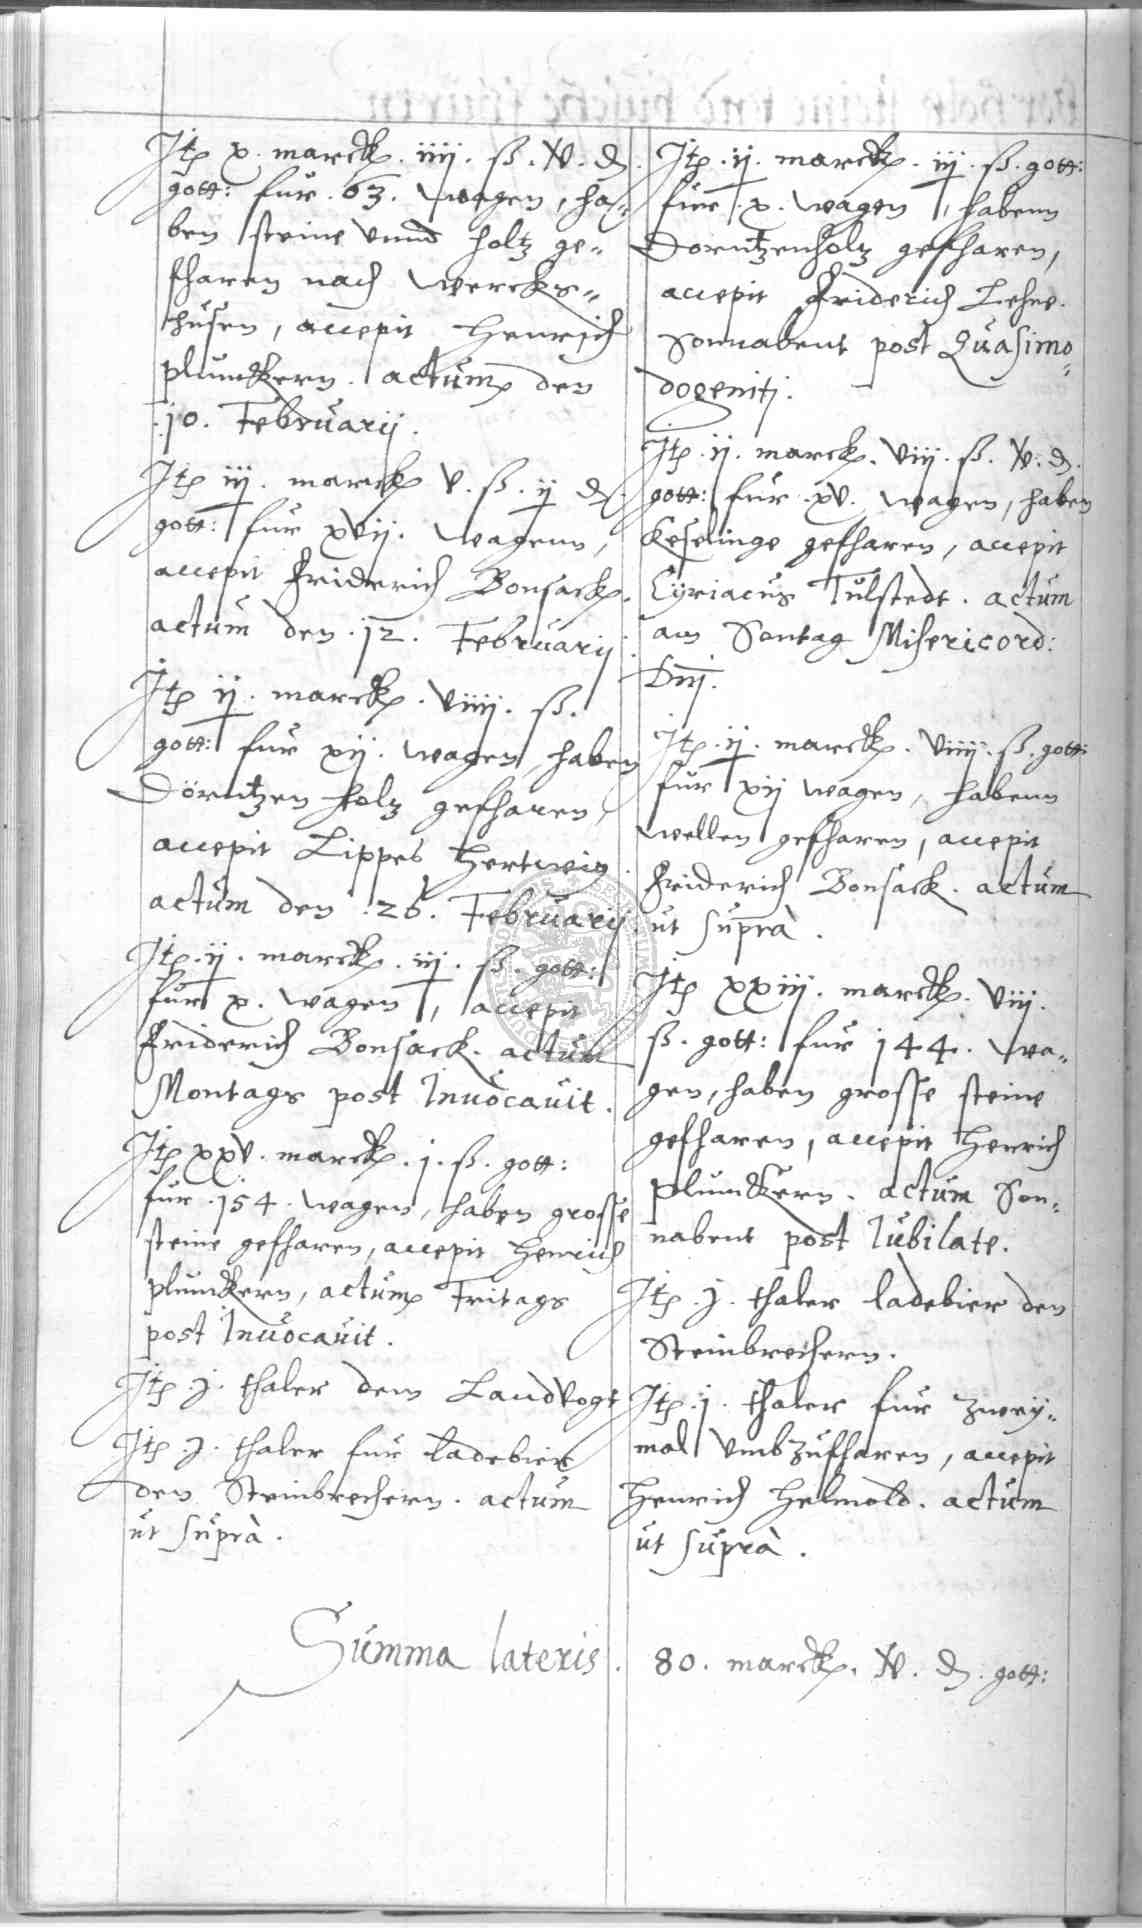 Itp x. marck. iiij. ß. v. d.
gott: fur .63. wagen, ha=
ben steine vnnd holtz ge=
fharen nach wercks=
husen, accepit Henrich
plumckern. actum den
.10. Februarij.
Itp iij. marck v. ß. ij d.
gott: fur xvij. wagenn,
accepit Friderich Bonsack.
actum den .12. Februarij.
Itp ij. marck. viiij. ß.
gott: fur xij. wagen, haben
Dörntzen holtz gefharen,
accepit Lippes Hertwig.
actum den .26. Februarij.
Itp. ij. marck. iij. ß. gott:
fur x. wagen, accepit
Friderich Bonsack. actum
Montags post Inuocauit.
Itp xxv. marck. j. ß. gott:
fur .154. wagen, haben grosse
steine gefharen, accepit Henrich
plumckern, actum Fritags
post Inuocauit.
Itp. j. thaler dem Landvogt
Itp. j. thaler fur ladebier
den Steinbrechern. actum
ut suprà.
Itp. ij. marck. iij. ß. gott:
fur .x. wagen, habenn
Dorntzenholtz gefharen,
accepit Friderich Lehne.
Sonnabent post Quasimo=
dogenitj.
Itp. ij. marck. viij. ß. v. d.
gott: fur .xv. wagen, haben
Keselinge gefharen, accepit
Cyriacus Tulstedt. actum
am Sontag Misericord:
Dnj.
Itp. ij. marck. viiij. ß. gott:
fur xij wagen, habenn
wellen gefharen, accepit
Friderich Bonsack. actum
ut suprà.
Itp xxiij. marck. viij.
ß. gott: fur 144. wa=
gen, haben grosse steine
gefharen, accepit Henrich
plumckern. actum Son=
nabent post Iubilate.
Itp. j. thaler ladebier den
Steinbrechern.
Itp. j. thaler fur zwey=
mal vmbzufharen, accepit
Henrich Helmold. actum
ut suprà.
Summa lateris. 80. marck. v. d. gott: